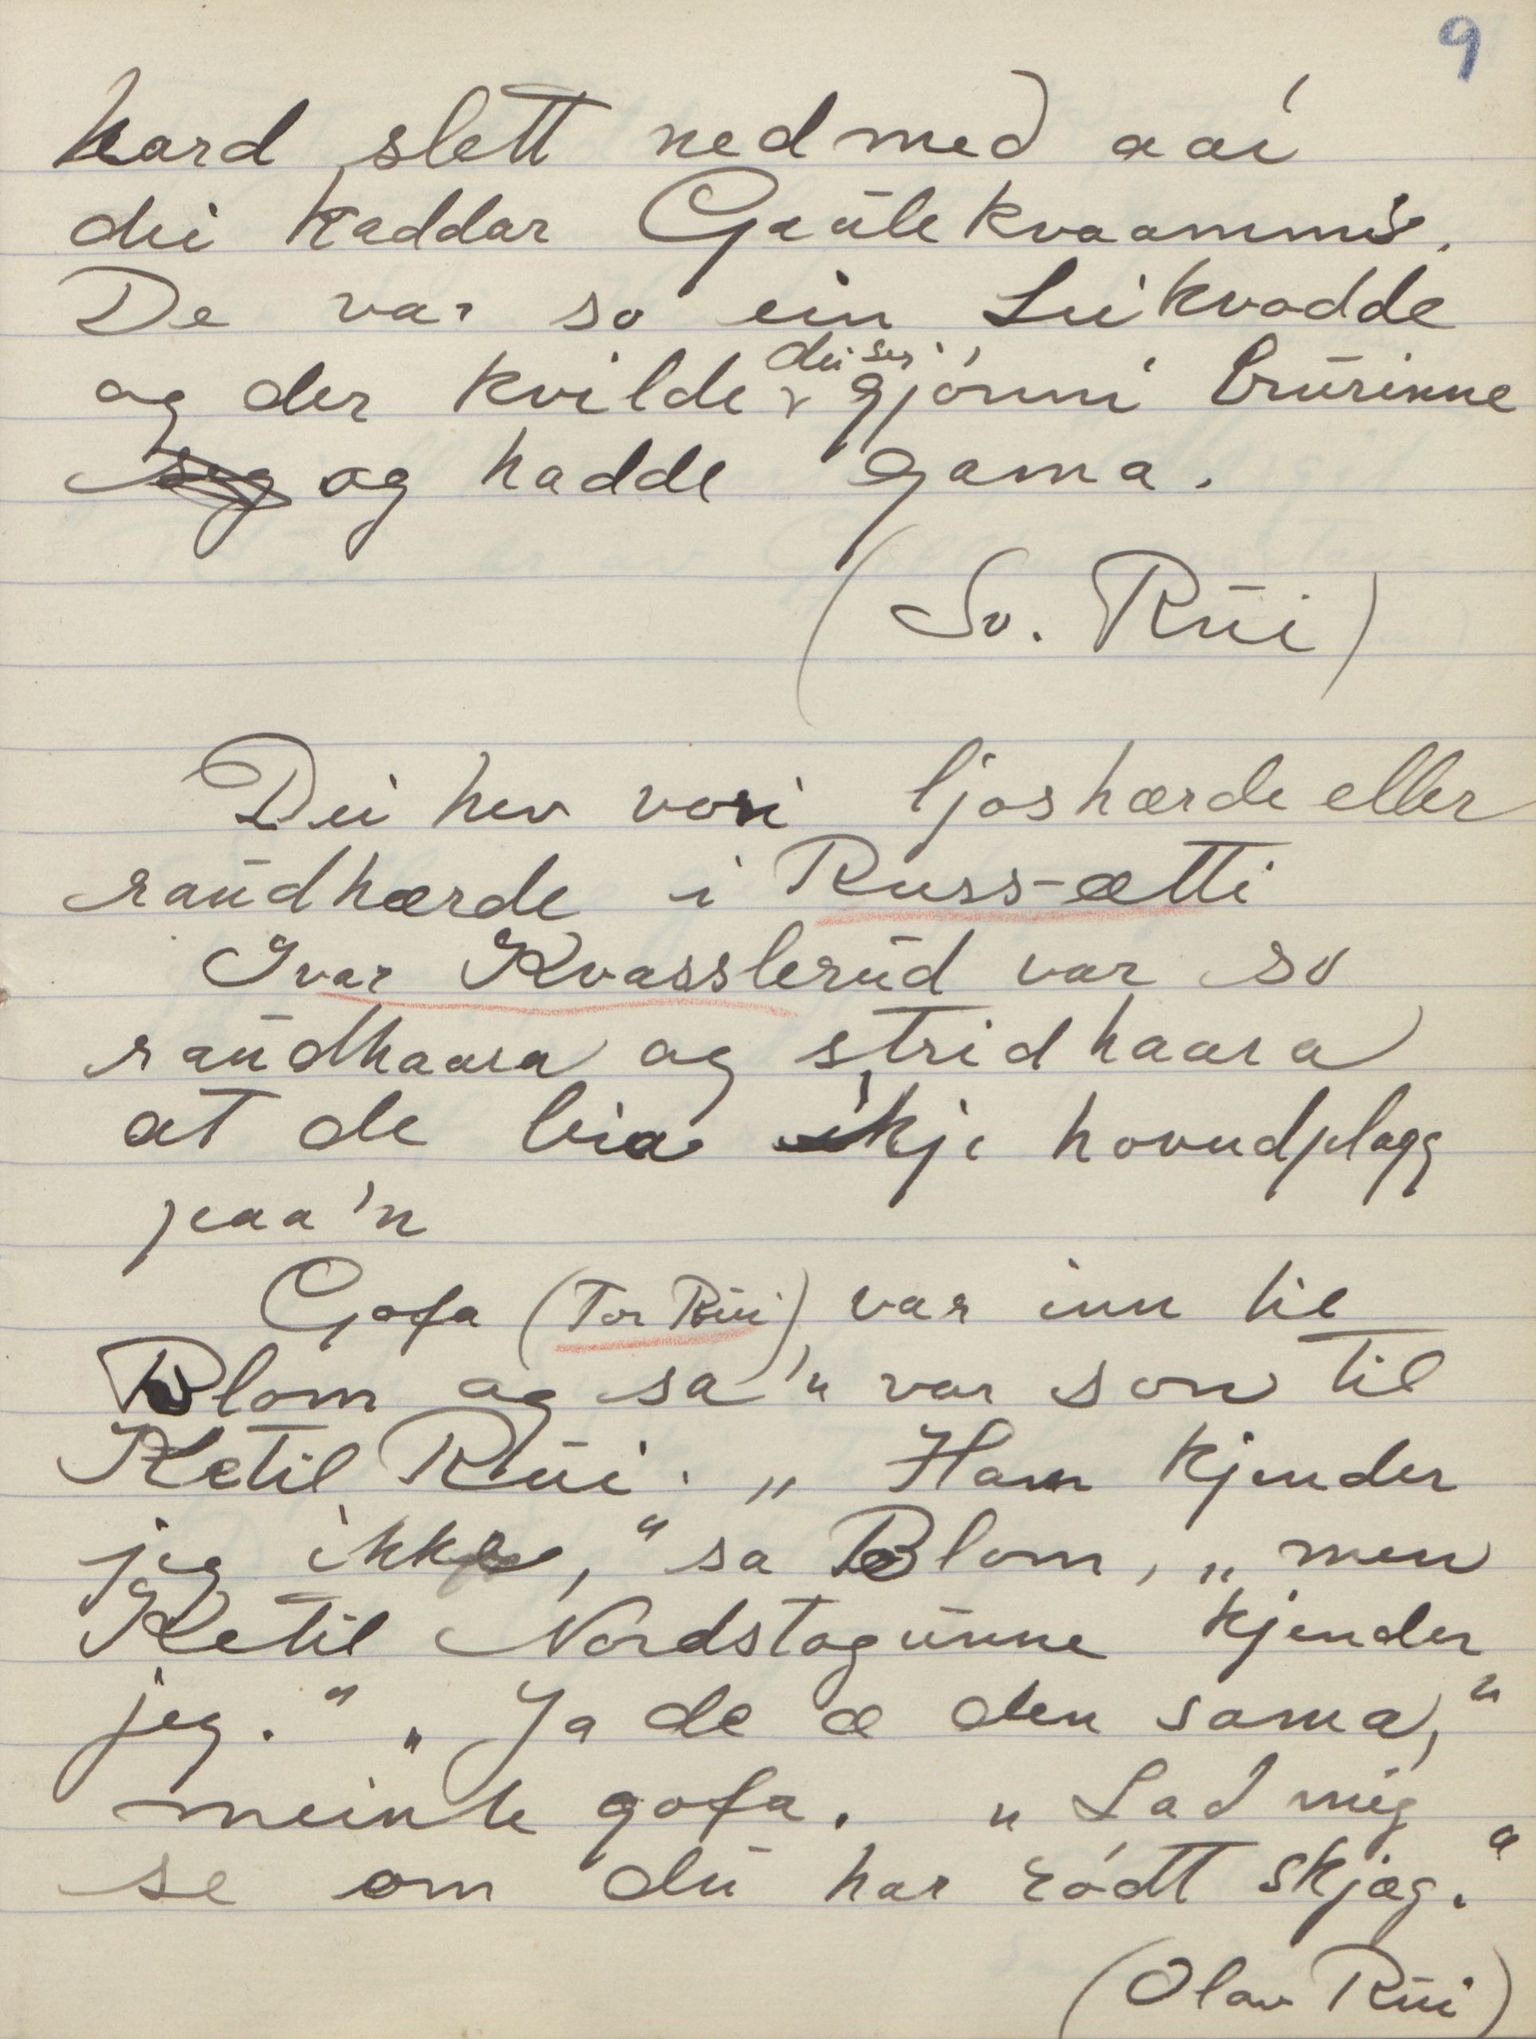 9
hard slett ned med aai
dei kaddar Gaulekvaammis.
De var so ein Leikvodde
og der kvilde dei ser gjønni brurinne
seg og hadde gama.
(Sv. Rui)
Dei hev vori ljoshærde eller
raudhærde i Russ-ætti
Ivar Kvassleрud var so
raudhaara og stridhaara
at de bia ikkje hovudplagg
paa'n
Gofa (Tor Rui) var inn til
Blom og sa'n var son til
Ketil Rui. „Ham kjender
jeg ikke," sa Blom, „men
Ketil Nordstogunne kjender
jeg." „Ja de æ den sama,"
meinte gofa. „Lad mig
se om du har rødt skjæg."
(Olav Rui)